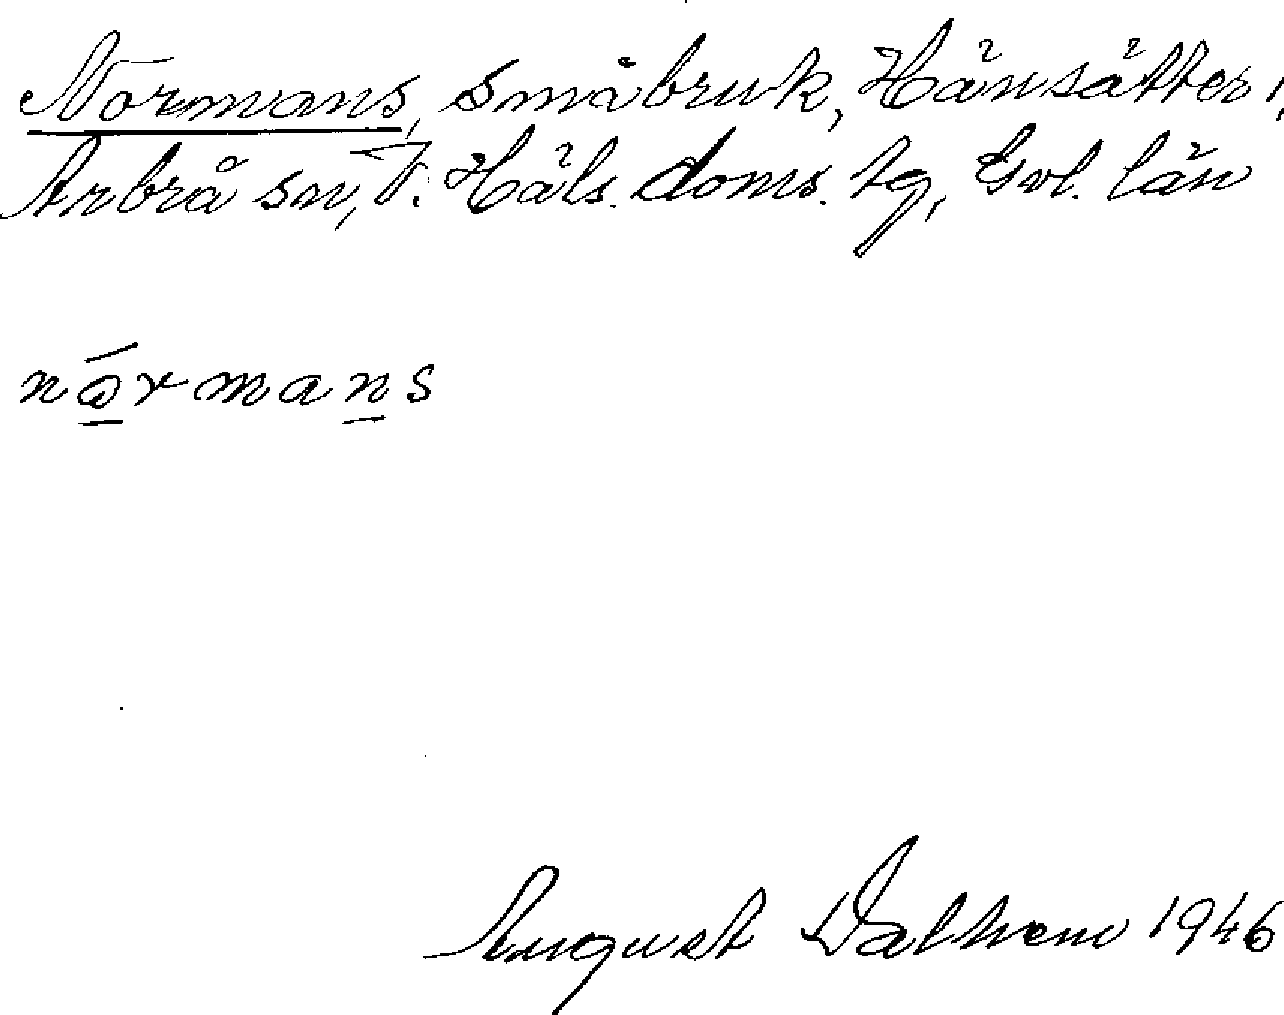 Normans, småbruk, Hänsätter 1,
Arbrå sn, V. Häls. doms. tg, Gvl. län
nórmans
August Dalhem 1946